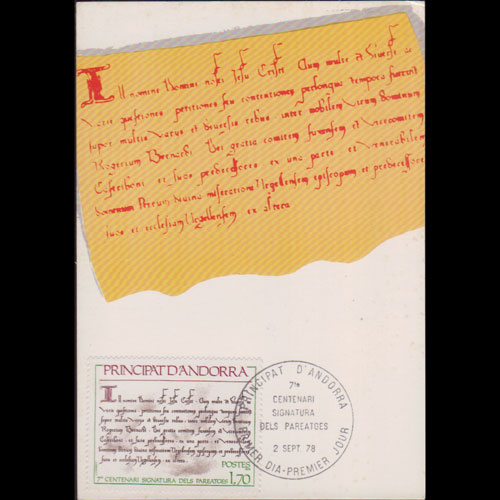 In nomine Domini nostri Jesu Cristi. Cum multe et diverse ac
varie questiones petitiones seu contentiones perlongua tempora fuerunt
super multis variis et diversis rebus inter nobilem virum dominum
Rogerium Bernardi Dei gratia comitem fuxensem et vicecomitem
Castriboni et suos predecessores ex una parte et venerabilem
Petrum divina miseratione Urgellensem episcopum et predecessores
suos et ecclesiam Urgellensem ex altera
PRINCIPAT D'ANDORRA
POSTES
7e CENTENARI SIGNATURA DELS PAREATGES
1,70
PRINCIPAT D'ANDORRA
7e
CENTENARI
SIGNATURA
DELS PAREATGES
2 SEPT. 78
PRIMER DIA-PREMIER JOUR